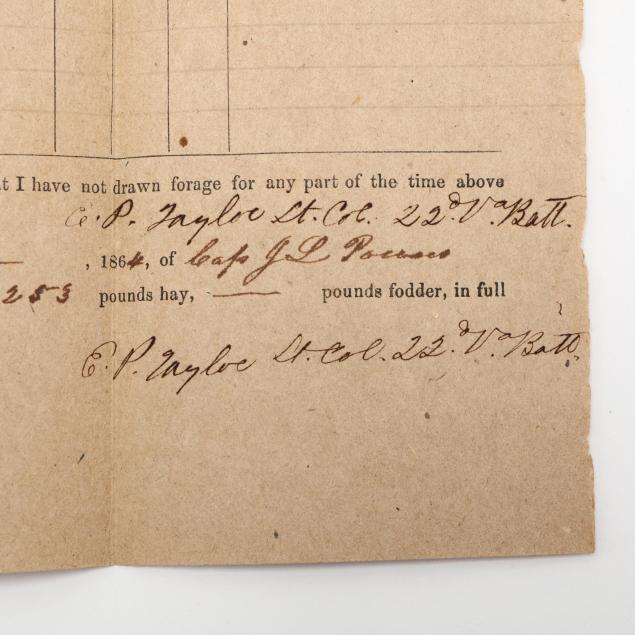 t I have not drawn forage for any part of the time above
E. P. Tayloe Lt. Col. 22d. Va Batt.
, 1864, of Capt J L
253 pounds hay, — pounds fodder, in full
E. P. Tayloe Lt. Col. 22d. Va Batt.